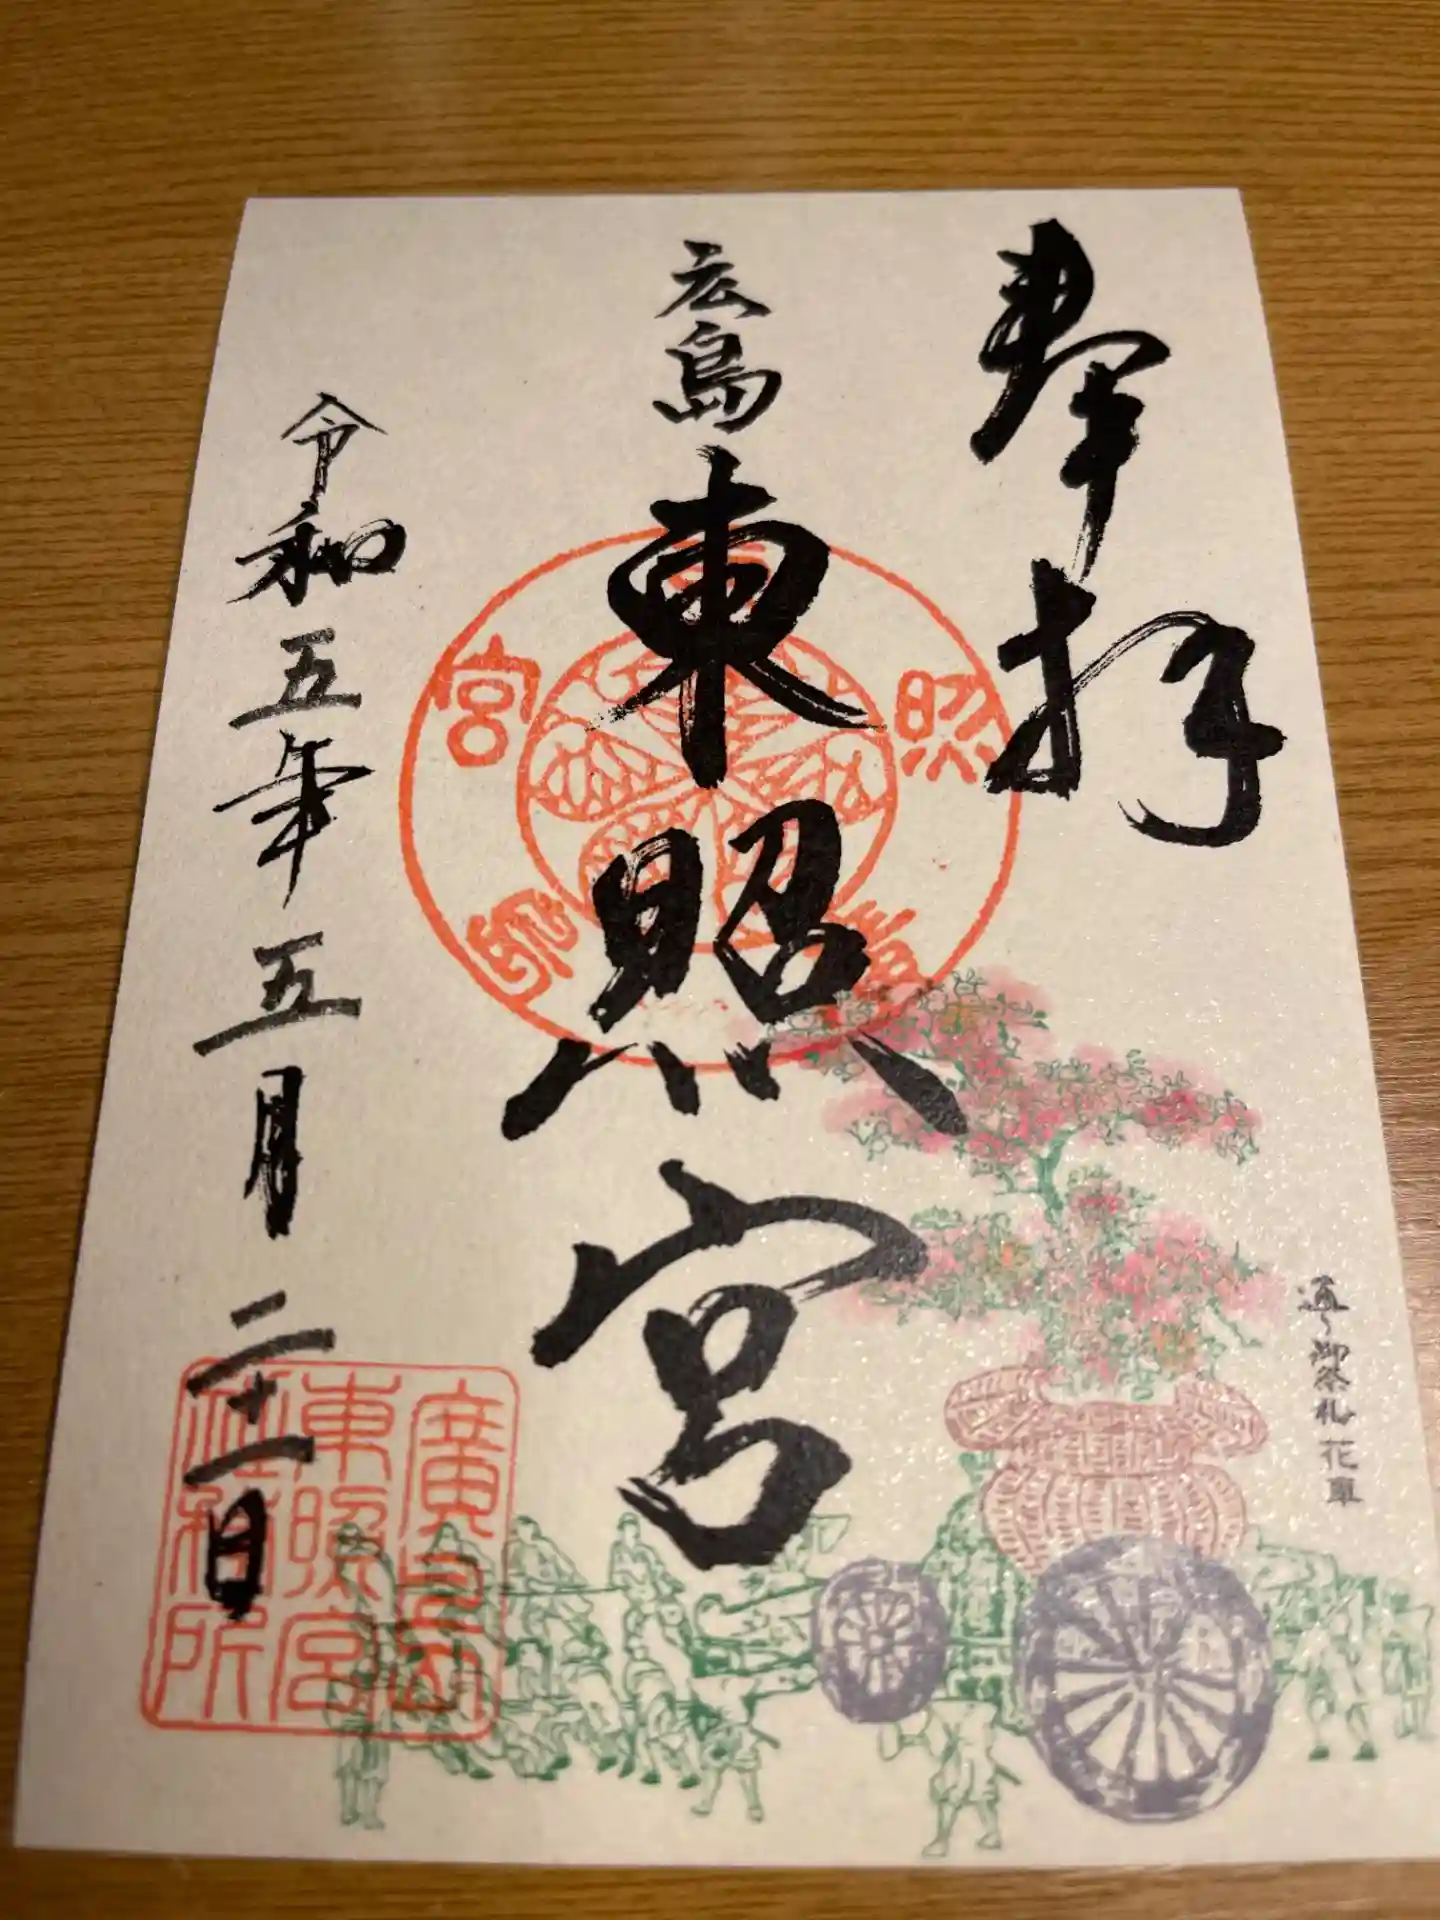 奉拝
広島
東照宮
令和五年五月二十一日
通り御祭礼 花車
照
宮
廣島
東照宮
社務所